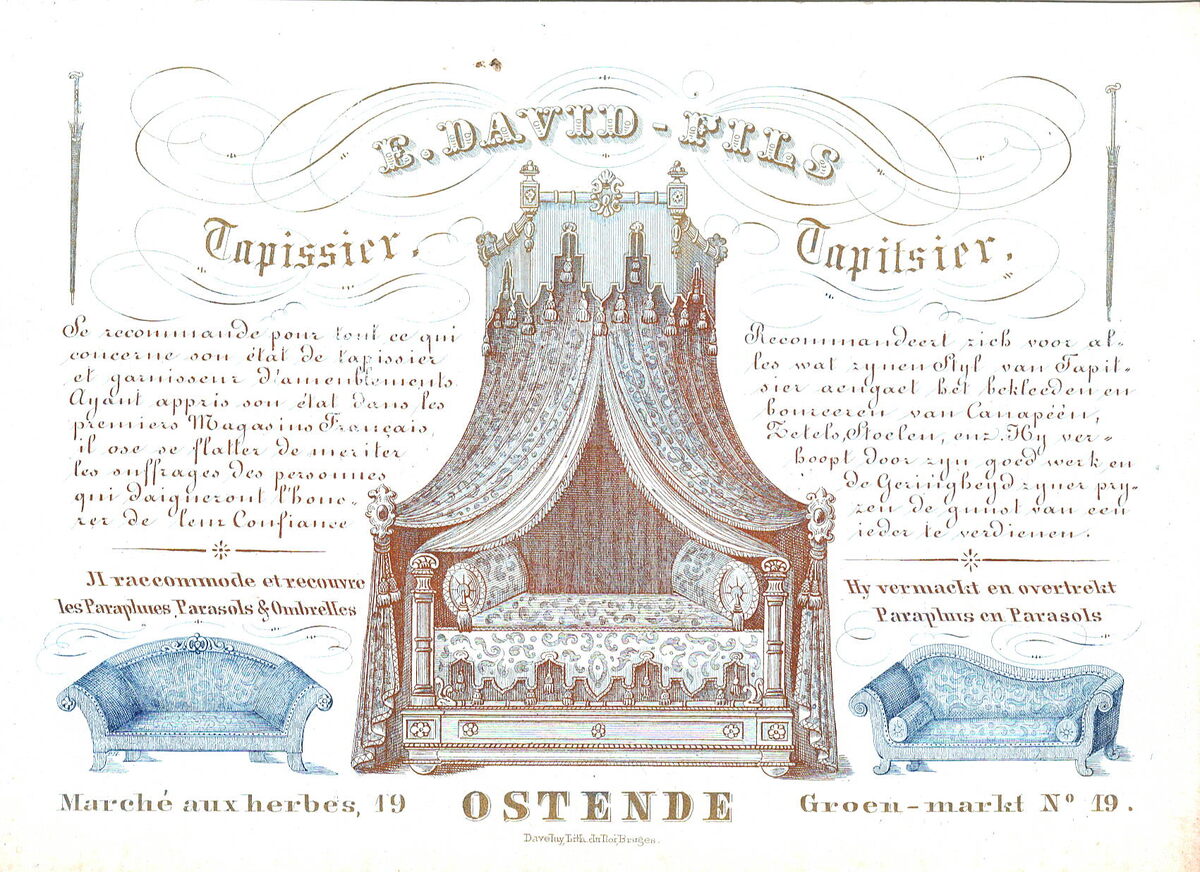 E. DAVID - FILS
Tapissier.
Se recommande pour tout ce qui
concerne son état de tapissier
et garnisseur d'ameublements
Ayant appris son état dans les
premiers Magasins Français,
il ose se flatter de meriter
les suffrages des personnes
qui daigneront l'hono-
rer de leur Confiance
Il raccommode et recouvre
les Parapluies Parasols & Ombrelles
Tapitsier.
Recommandeert zich voor al-
les wat zynen Styl van Tapit-
sier aengaet het bekleeden en
bourceren van Canapéën,
Zetels, Stoelen, enz. Hy ver-
hoopt door zyn goed werk en
de Geringheyd zyner pry-
zen de gunst van een
ieder te verdienen.
Hy vermackt en overtrekt
Parapluis en Parasols
Marché aux herbes, 19
OSTENDE
Groen-markt Nº 19.
Daveluy, Lith. du Roi, Bruges.